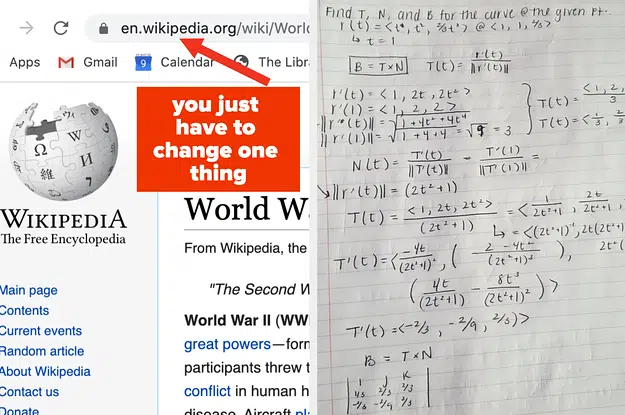 en.wikipedia.org/wiki/Worl
Apps
Gmail
9
Calendar
The Libr
you just
have to
change one
thing
WIKIPEDIA
The Free Encyclopedia
Main page
Contents
Current events
Random article
About Wikipedia
Contact us
Donate
World Wa
From Wikipedia, the
"The Second W
World War II (WW
great powers—form
participants threw t
conflict in human h
disease. Aircraft pla
Find T, N, and B for the curve @ the given pt.
r(t) = <t, t², 2/3 t³> @ <1, 1, 2/3>
↳ t = 1
B = T×N
T(t) = r'(t) / ||r'(t)||
r'(t) = <1, 2t, 2t²>
r'(1) = <1, 2, 2>
||r'(t)|| = √1+4t²+4t⁴
||r'(1)|| = √1+4+4 = √9 = 3
T(t) = <1, 2, 2> / 3
T(t) = <1/3, 2/3,
N(t) = T'(t) / ||T'(t)|| = T'(1) / ||T'(1)|| =
↳ ||r'(t)|| = (2t²+1)
T(t) = <1, 2t, 2t²> / (2t²+1) = <1/2t²+1, 2t/2t²+1,
↳ = <(2t²+1)⁻¹, 2t(2t²+1
T'(t) = <-4t/(2t²+1)², (2-4t²/(2t²+1)²),
(4t/(2t²+1) - 8t³/(2t²+1)²)>
T'(t) = <-2/3, -2/9, 2/3)>
B = T×N
J K
1/3 2/3 2/3
-2/3 -2/9 2/3